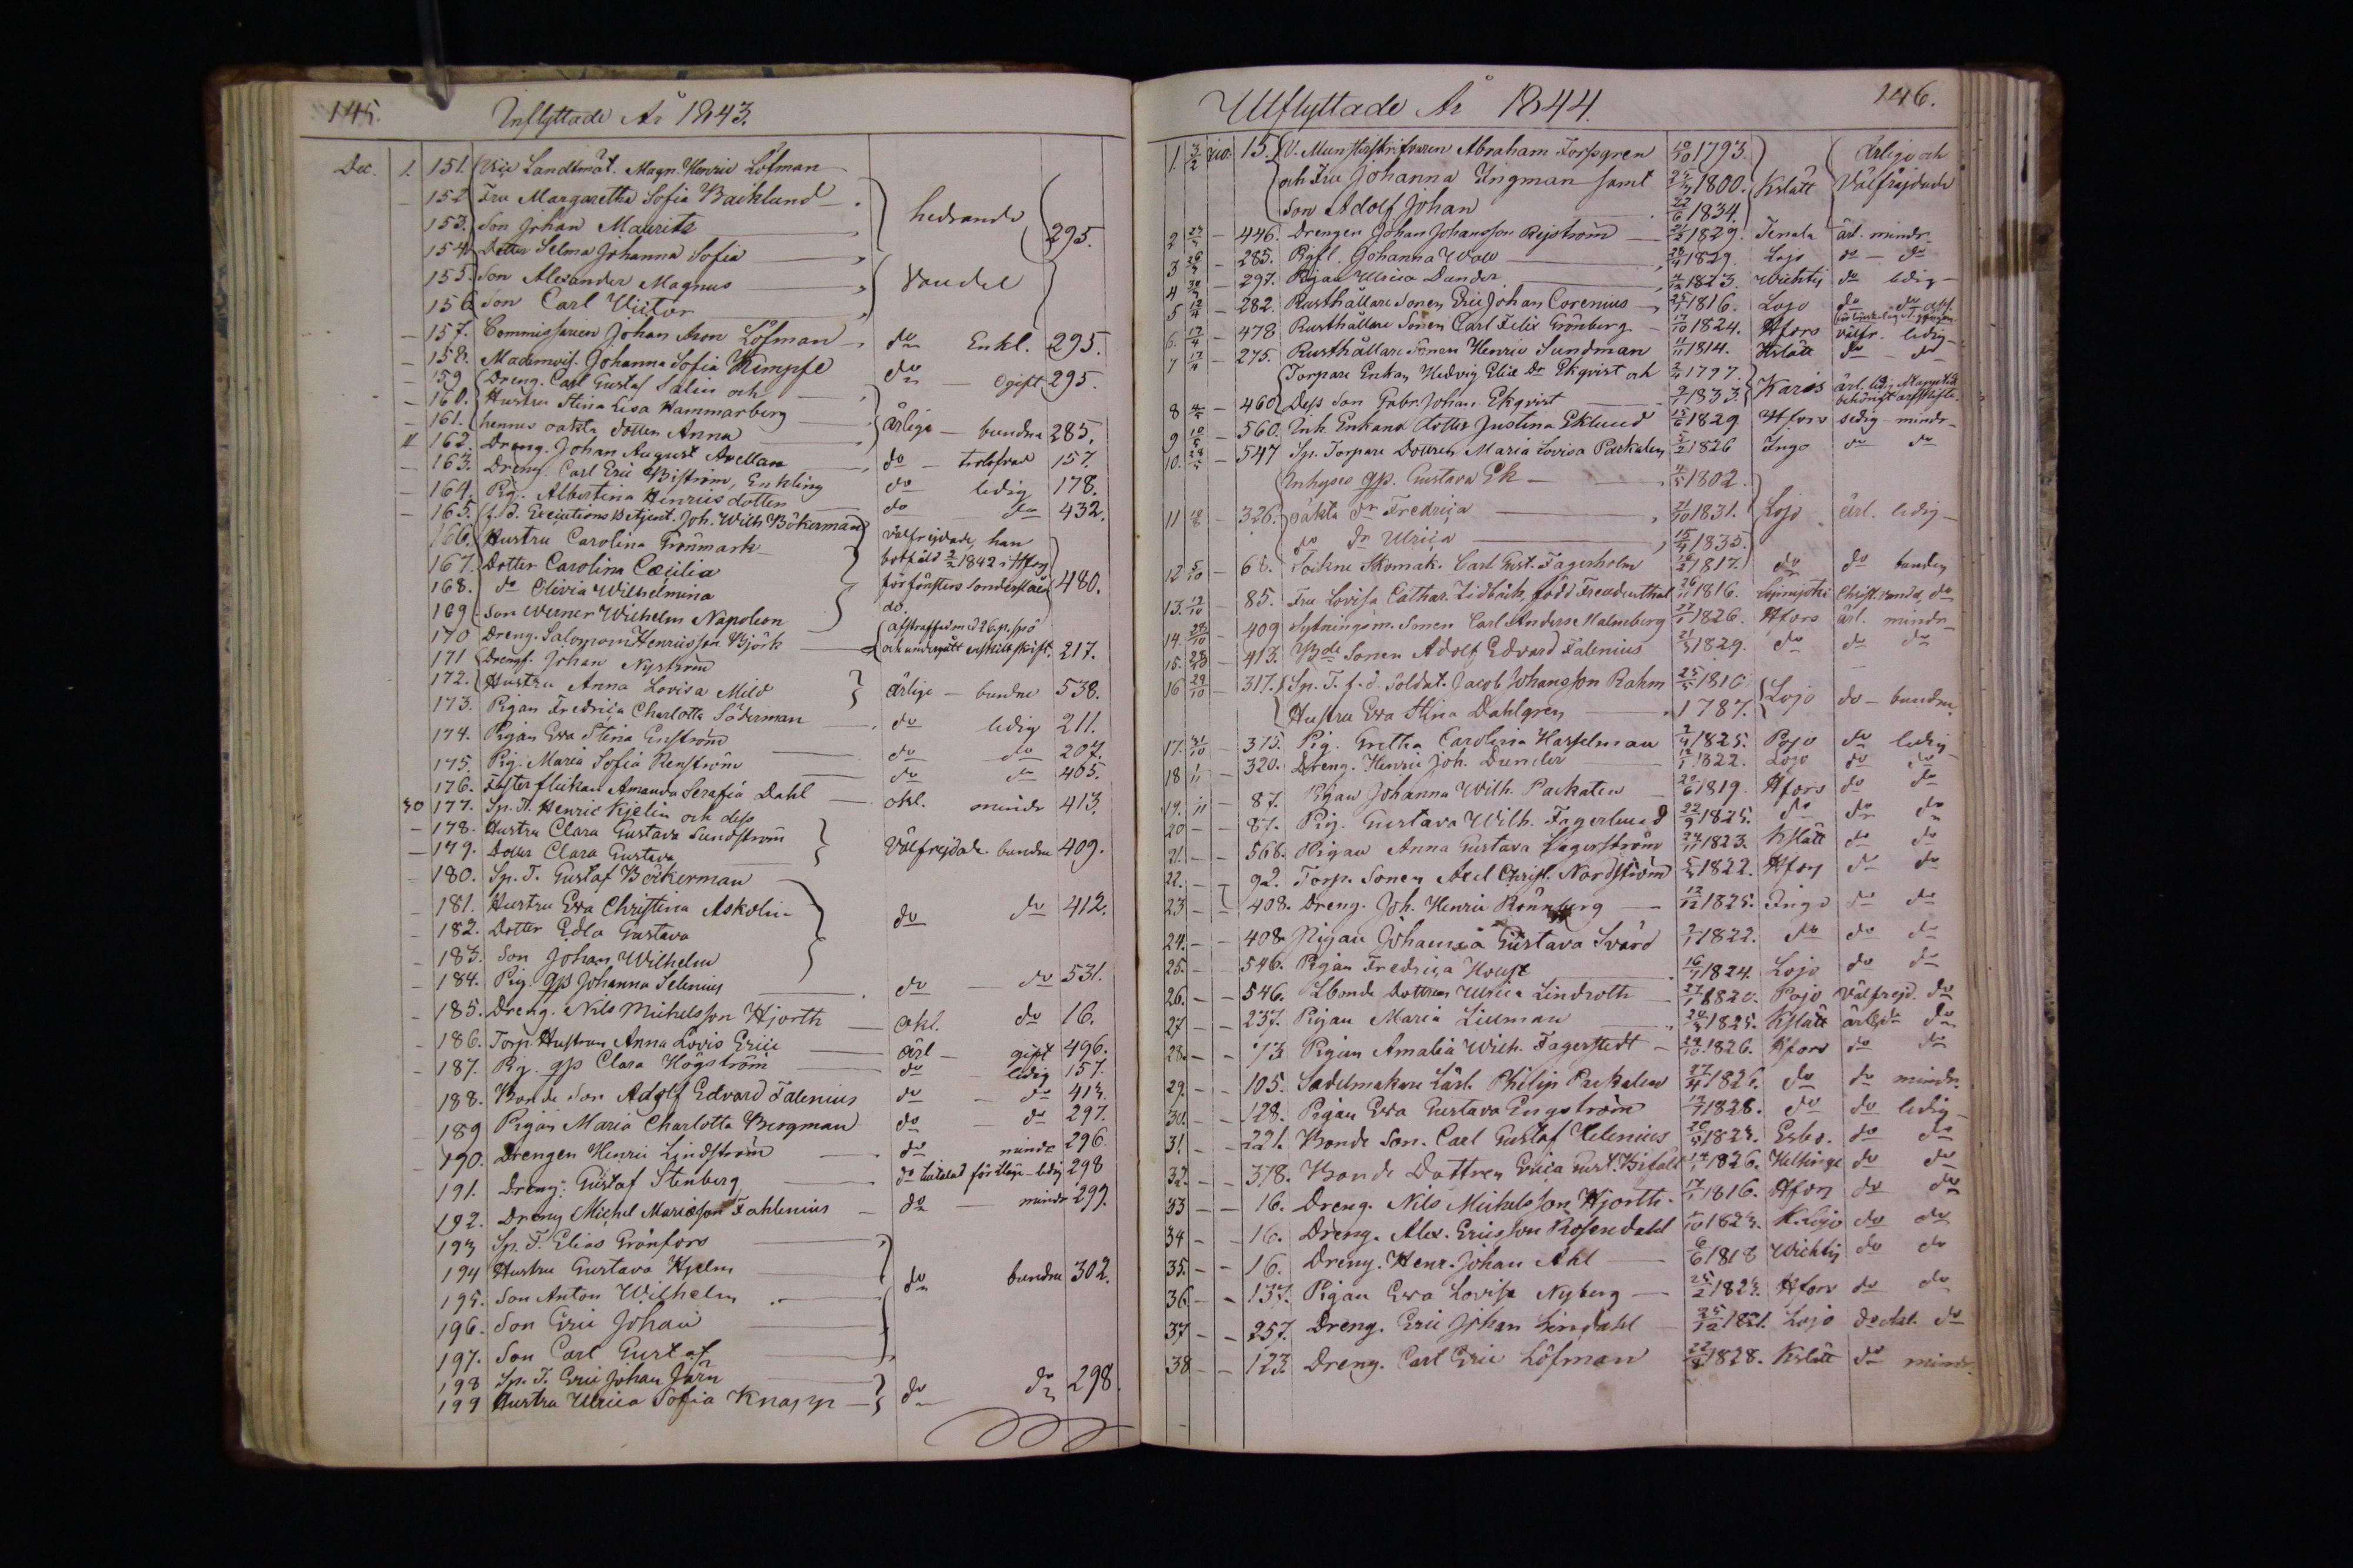 145. Inflyttade År 1843.
Dec. 1. 151. Vice Landtmät. Magn. Henric Löfman
152 Fru Margaretha Sofia Backlund
153. Son Johan Mauritz hedrande 295.
154 Dotter Selma Johanna Sofia
155. Son Alexander Magnus Vandel
156 Son Carl Victor
157. Commissarien Johan Aron Löfman do Enkl. 295.
158. Mademois. Johanna Sofia Kempfe do ogift 295.
159 Dreng. Carl Gustaf Salin och
160. Hustru Stina Lisa Hammarberg
161. hennes oäkta dotter Anna ärliga bundna 285.
11 162. Dreng. Johan August Avellan do trolofvad 157.
163. Dreng. Carl Eric Biström, Enkling do ledig 178.
164. Pig. Albertina Henricsdotter do do 432.
165. f.d. Executions Betjent. Joh. Wilh Böckerman
166. Hustru Carolina Grönmark välfrejdade, han
167. Dotter Carolina Cæcilia botfäld 2/2 1842 i Hfors
168. do Olivia Wilhelmina för fönsters sönderslåen 480.
169. Son Werner Wilhelm Napoleon do.
170 Dreng. Salomon Henricsson Björk afstraffad med 26. p. spö
och undergått enskilt skrift. 217.
171 Drengf. Johan Nyström
172. Hustru Anna Lovisa Mild ärliga — bundne 538.
173. Pigan Fredrica Charlotta Söderman do ledig 211.
174. Pigan Eva Stina Enström do do 207.
175. Pig. Maria Sofia Renström do do 405.
176. Fosterflickan Amanda Serafia Dahl okl. mindr 413.
30 177. Sp. T. Henric Kjelin och dess
178. Hustru Clara Gustava Sundström
179. Dotter Clara Gustava Välfrejdade. bundna 409.
180. Sp. T. Gustaf Böckerman
181. Hustru Eva Christina Askolin do do 412.
182. Dotter Edla Gustava
183. Son Johan Wilhelm
184. Pig. gp Johanna Selenius do do 531.
185. Dreng. Nils Michelsson Hjorth okl. do 16.
186. Torp. Hustrun Anna Lovis Eric ärl — gift 496.
187. Pig. gp Clara Högström do ledig 157.
188. Bonde Son Adolf Edvard Falenius do do 413.
189 Pigan Maria Charlotta Bergman do do 297.
190. Drengen Henric Lindström do mindr 296.
191. Dreng. Gustaf Stenberg do ledig 298
192. Dreng Michel Mariasson Fahlenius do mindr 297.
193 Sp. T. Elias Grönfors
194 Hustru Gustava Hjelm do bundna 302.
195. Son Anton Wilhelm
196. Son Eric Johan
197. Son Carl Gustaf
198 Sp. T. Eric Johan Järn
199 Hustru Ulrica Sofia Knapp do do 298.
Utflyttade År 1844. 146.
1. 3/2 15. V. Munsterskrifvaren Abraham Forsgren 1793. Ärliga och
och Fru Johanna Ingman samt 1800. Kslätt Välfräjdade
Son Adolf Johan 22/6 1834.
2 446. Drengen Johan Johansson Rejström 1829. Tenala ärl. mindr
3 285. Pigfl. Johanna Wall 1829. Lojo do — do
4 297. Pigan Ulrica Dunder 1823. Wichtis do ledig
5 282. Rusthållare Sonen Eric Johan Corenius 1816. Lojo do do
6. 17/4 478 Rusthållare Sonen Carl Felix Grönberg 17/10 1824. Hfors välfr. ledig
7 17/4 275. Rusthållare Sonen Henric Sundman 11/11 1814. Kslätt do do
Torpare Enkan Hedvig Elis. Dr Ekqvist och 1797.
8 460 Dess Son Gabr. Johan Ekqvist 1833. Karis
9 560. Inh. Enkans dotter Justina Eklund 1829 Hfors ledig mindr
10. 547 Sp. Torpare Dottren Maria Lovisa Packalen 1826 Ingo do do
Inhyses gp. Gustava Ek 1802.
11 326. oäkta dr Fredrica 1831. Lojo ärl. ledig
do dr Ulrica 1835.
12 5/10 68. Sockne Skomak. Carl Gust. Fagerholm 1817. do do bunden
13. 12/10 85. Fru Lovisa Cathar. Lidbäck, född Freudenthal 1816. do
14. 28/10 409 Sytningsm. Sonen Carl Anders Malmberg 1826. Hfors ärl. mindr
15. 413. Bde Sonen Adolf Edvard Falenius 1829. do do do
16 29/10 317. Sp. T. f. d. Soldat. Jacob Johansson Rahm 1810
Hustru Eva Stina Dahlgren 1787. Lojo do — bundna
17. 31/10 375. Pig. Gretha Carolina Hasselman 1825. Pojo do ledig
18 1/11 320. Dreng. Henric Joh. Dunder 1822. Lojo do do
19. 11 87. Pigan Johanna Wilh. Packalen 1819. Hfors do do
20 87. Pig. Gustava Wilh. Fagerlund 1825. do do do
21. 568. Pigan Anna Gustava Lagerström 1823. Kslätt do do
22. 92. Torp. Sonen Axel Christ. Nordström 1822. Hfors do do
23 408. Dreng. Joh. Henric Rönnberg 1825. Ingo do do
24. 408. Pigan Johanna Gustava Svärd 1822. do do do
25. 546. Pigan Fredrica Houst 16/7 1824. Lojo do do
26. 546. Lbonde Dottren Ulrica Lindroth 1820. Pojo Välfrejd. do
27 237. Pigan Maria Liliman 1825. Kslätt ärl do
28. 73. Pigan Amalia Wilh. Fagerstedt 29/10 1826. Hfors do do
29. 105. Sadelmakare Lärl. Philip Packalen 27/4 1826. do do mindr.
30. 128. Pigan Eva Gustava Engström 1828. do do ledig
31. 221. Bonde Son. Carl Gustaf Helenius 1825. Esbo. do do
32. 378. Bonde Dottren Erica Gust. 1826. Helsinge do do
33 16. Dreng. Nils Michelsson Hjorth 17/1 1816. Hfors do do
34 16. Dreng. Alex. Ericsson Rosendahl do do
35. 16. Dreng. Henr. Johan Ahl 6/6 1818 Wichtis do do
36 137. Pigan Eva Lovisa Nyberg Hfors do do
37 257. Dreng. Eric Johan Lindahl 25/12 1821. Lojo do okl. do
38 123. Dreng. Carl Eric Löfman 1828. Kslätt do mindr.